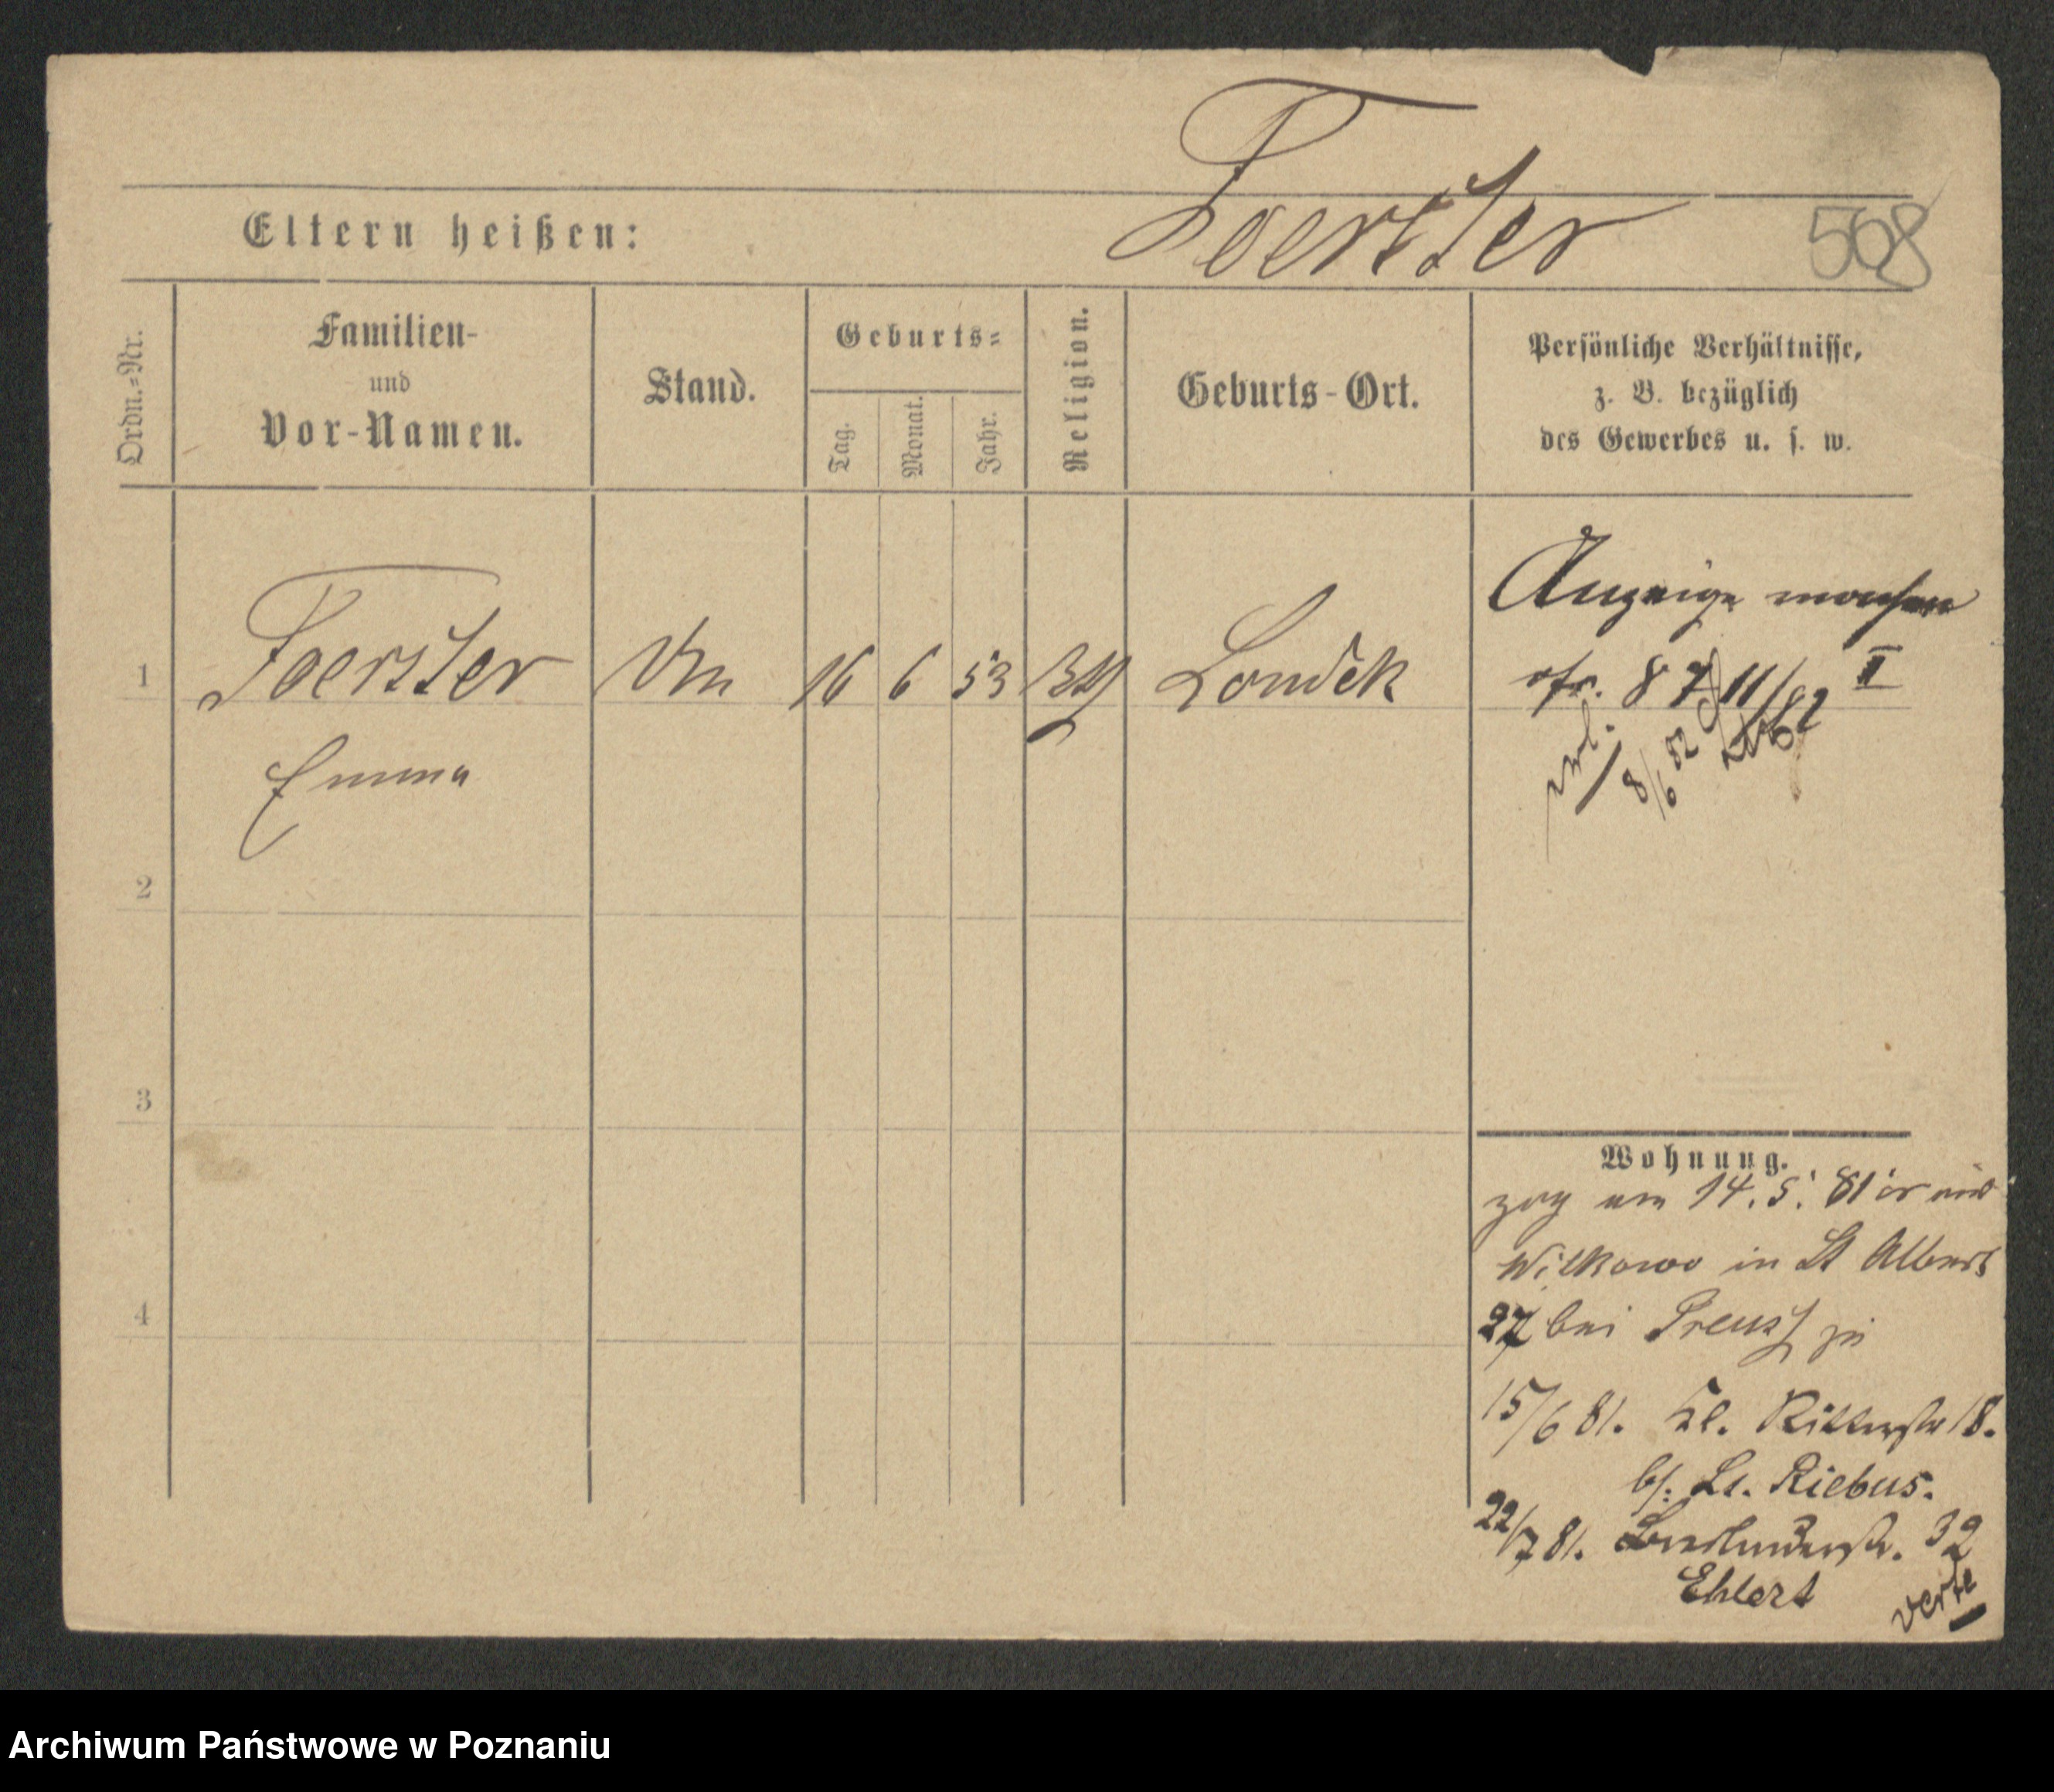 Foerster
568
Eltern heißen:
Ordn.=Nr.
Familien-
und
Vor-Namen.
Stand.
Geburts=
Tag.
Monat.
Jahr.
Religion.
Geburts-Ort.
Persönliche Verhältnisse,
z. B. bezüglich
des Gewerbes u. s. w.
1 Foerster 16 6 53 Landek
Emma
Anzeige machen
8 7/11/82 II
8/6 82
2
3
4
Wohnung.
zog am 14. 5. 81 er aus
Wilkowo in St Albert
27 bei Preuss zu
15/6 81. Kl. Ritterstr 18.
bei Riebus.
22/7 81. Breslauerstr. 32
Ehlert
verte
Archiwum Państwowe w Poznaniu